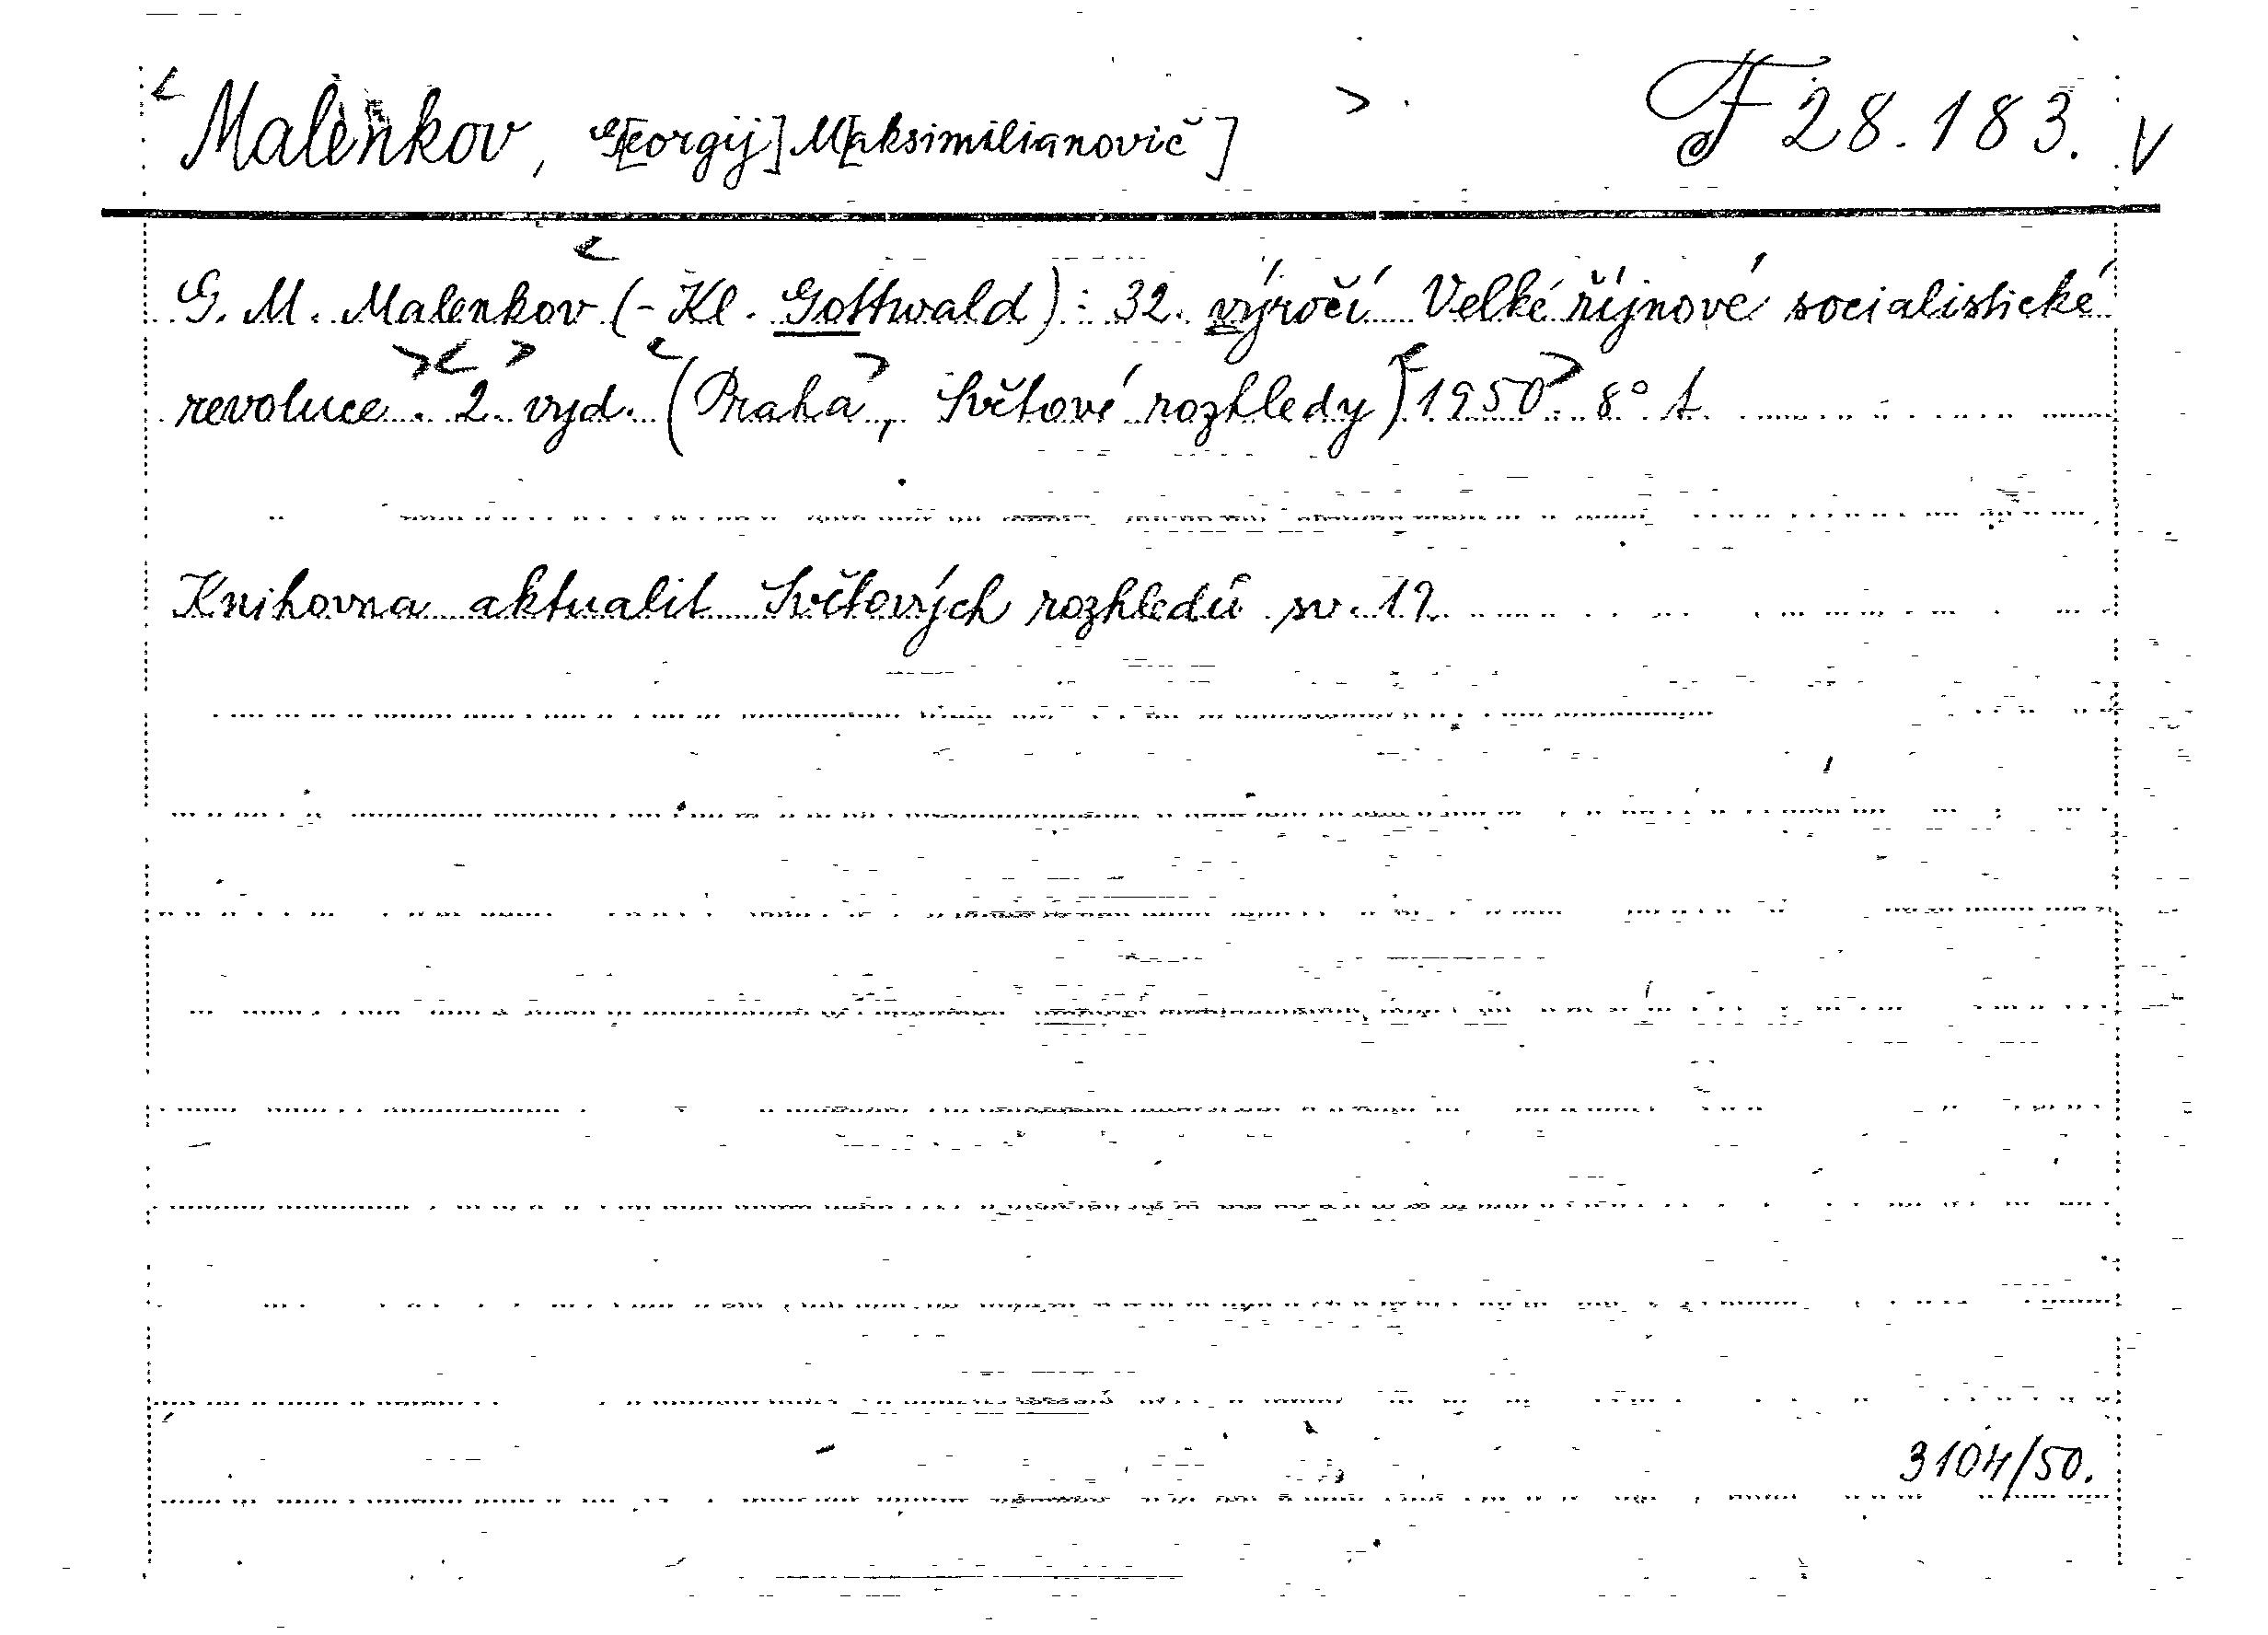 Malenkov, G[eorgij] M[aksimilianovič] F 28.183. V
G. M. Malenkov (- Kl. Gottwald): 32. výročí Velké říjnové socialistické
revoluce. 2. vyd. (Praha, Světové rozhledy) 1950. 8° t.
Knihovna aktualit Světových rozhledů sv. 19
3104/50.